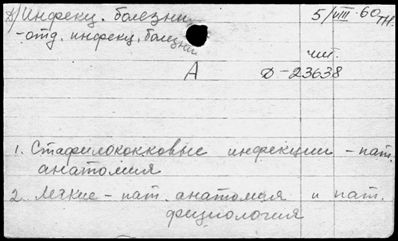 Инфекц. болезни 5/VIII-60
-отд. инфекц. болезни
чит.
А Д-23638
1. Стафилококковые инфекции - пат.
анатомия
2. Легкие - пат. анатомия и пат.
физиология